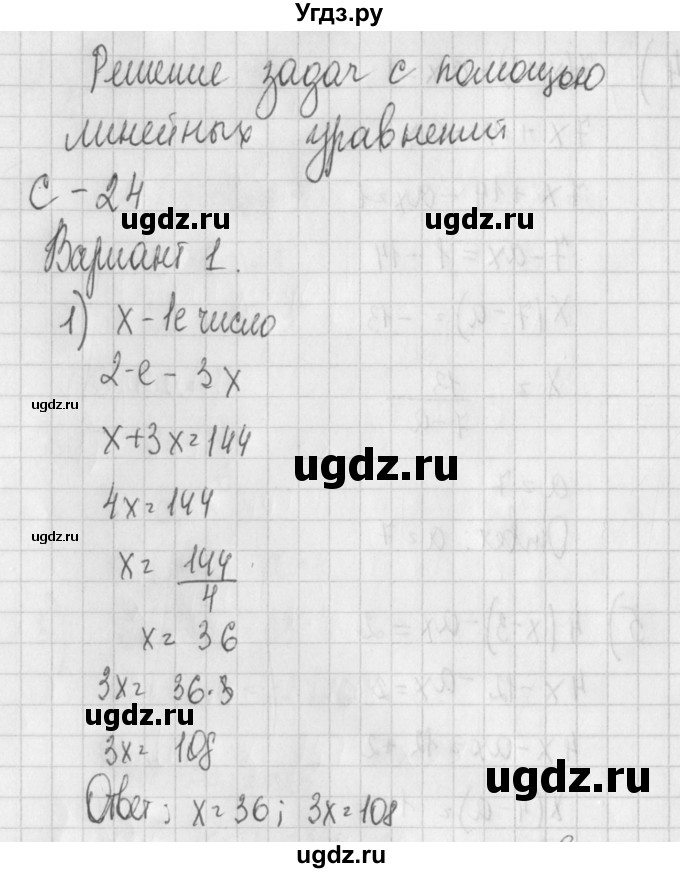 Угдз.ру
Решение задач с помощью
линейных уравнений
С - 24
ugdz.ru ugdz.ru
Вариант 1.
1) x - 1е число
2-е - 3x
ugdz.ru
x+3x=144
ugdz.ru
4x=144
ugdz.ru
x= 144/4
x= 36
3x= 36·3
ugdz.ru
3x= 108
ugdz.ru
Ответ; x=36; 3x=108
ugdz.ru